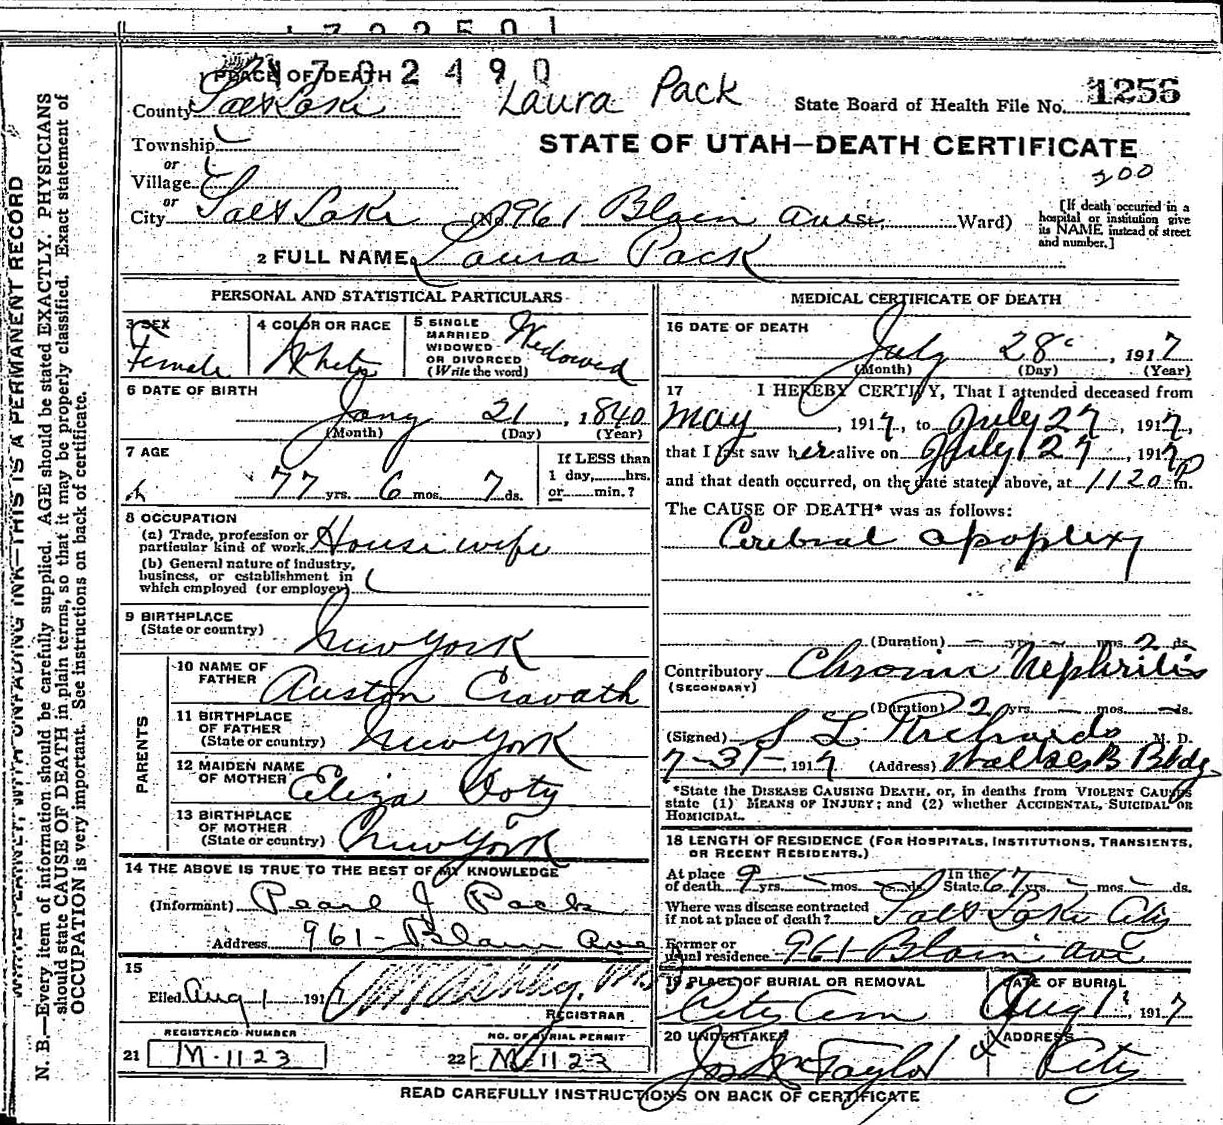 1702490
PLACE OF DEATH
County Salt Lake
Laura Pack
State Board of Health File No. 1256
STATE OF UTAH—DEATH CERTIFICATE
200
Township
or
Village
or
City Salt Lake (No. 961 Blain Ave St., Ward)
[If death occurred in a hospital or institution give its NAME instead of street and number.]
2 FULL NAME Laura Pack
PERSONAL AND STATISTICAL PARTICULARS
3 SEX
Female
4 COLOR OR RACE
White
5 SINGLE MARRIED WIDOWED OR DIVORCED (Write the word)
Widowed
6 DATE OF BIRTH
Jany 21, 1840
(Month) (Day) (Year)
7 AGE
77 yrs. 6 mos. 7 ds.
If LESS than 1 day, hrs. or min.?
8 OCCUPATION
(a) Trade, profession or particular kind of work House wife
(b) General nature of industry, business, or establishment in which employed (or employer)
9 BIRTHPLACE
(State or country) New York
PARENTS
10 NAME OF FATHER Auston Cravath
11 BIRTHPLACE OF FATHER (State or country) New York
12 MAIDEN NAME OF MOTHER Eliza Doty
13 BIRTHPLACE OF MOTHER (State or country) New York
14 THE ABOVE IS TRUE TO THE BEST OF MY KNOWLEDGE
(Informant) Pearl J Pack
Address 961 - Blain Ave
15
Filed Aug 1 1917
REGISTRAR
REGISTERED NUMBER
21 M-1123
NO. OF BURIAL PERMIT
22 M-1123
MEDICAL CERTIFICATE OF DEATH
16 DATE OF DEATH
July 28, 1917
(Month) (Day) (Year)
17 I HEREBY CERTIFY, That I attended deceased from
May, 1917, to July 27, 1917,
that I last saw her alive on July 27, 1917
and that death occurred, on the date stated above, at 1120 P m.
The CAUSE OF DEATH* was as follows:
Cerebral apoplexy
(Duration) — yrs. — mos. 2 ds.
Contributory Chronic Nephritis
(SECONDARY)
(Duration) 2 yrs. — mos. — ds.
(Signed) S L Richards M. D.
7-31-, 1917 (Address) Walker B Bldg
*State the DISEASE CAUSING DEATH, or, in deaths from VIOLENT CAUSES
state (1) MEANS OF INJURY; and (2) whether ACCIDENTAL, SUICIDAL OR
HOMICIDAL.
18 LENGTH OF RESIDENCE (FOR HOSPITALS, INSTITUTIONS, TRANSIENTS,
OR RECENT RESIDENTS.)
At place of death 9 yrs. — mos. — ds. In the State 67 yrs. — mos. — ds.
Where was disease contracted if not at place of death? Salt Lake City
Former or usual residence 961 - Blain Ave
19 PLACE OF BURIAL OR REMOVAL
City Cem
DATE OF BURIAL
Aug 1, 1917
20 UNDERTAKER
Jos Wm Taylor
ADDRESS
City
READ CAREFULLY INSTRUCTIONS ON BACK OF CERTIFICATE
WRITE PLAINLY, WITH UNFADING INK—THIS IS A PERMANENT RECORD
N. B.—Every item of information should be carefully supplied. AGE should be stated EXACTLY. PHYSICIANS
should state CAUSE OF DEATH in plain terms, so that it may be properly classified. Exact statement of
OCCUPATION is very important. See instructions on back of certificate.